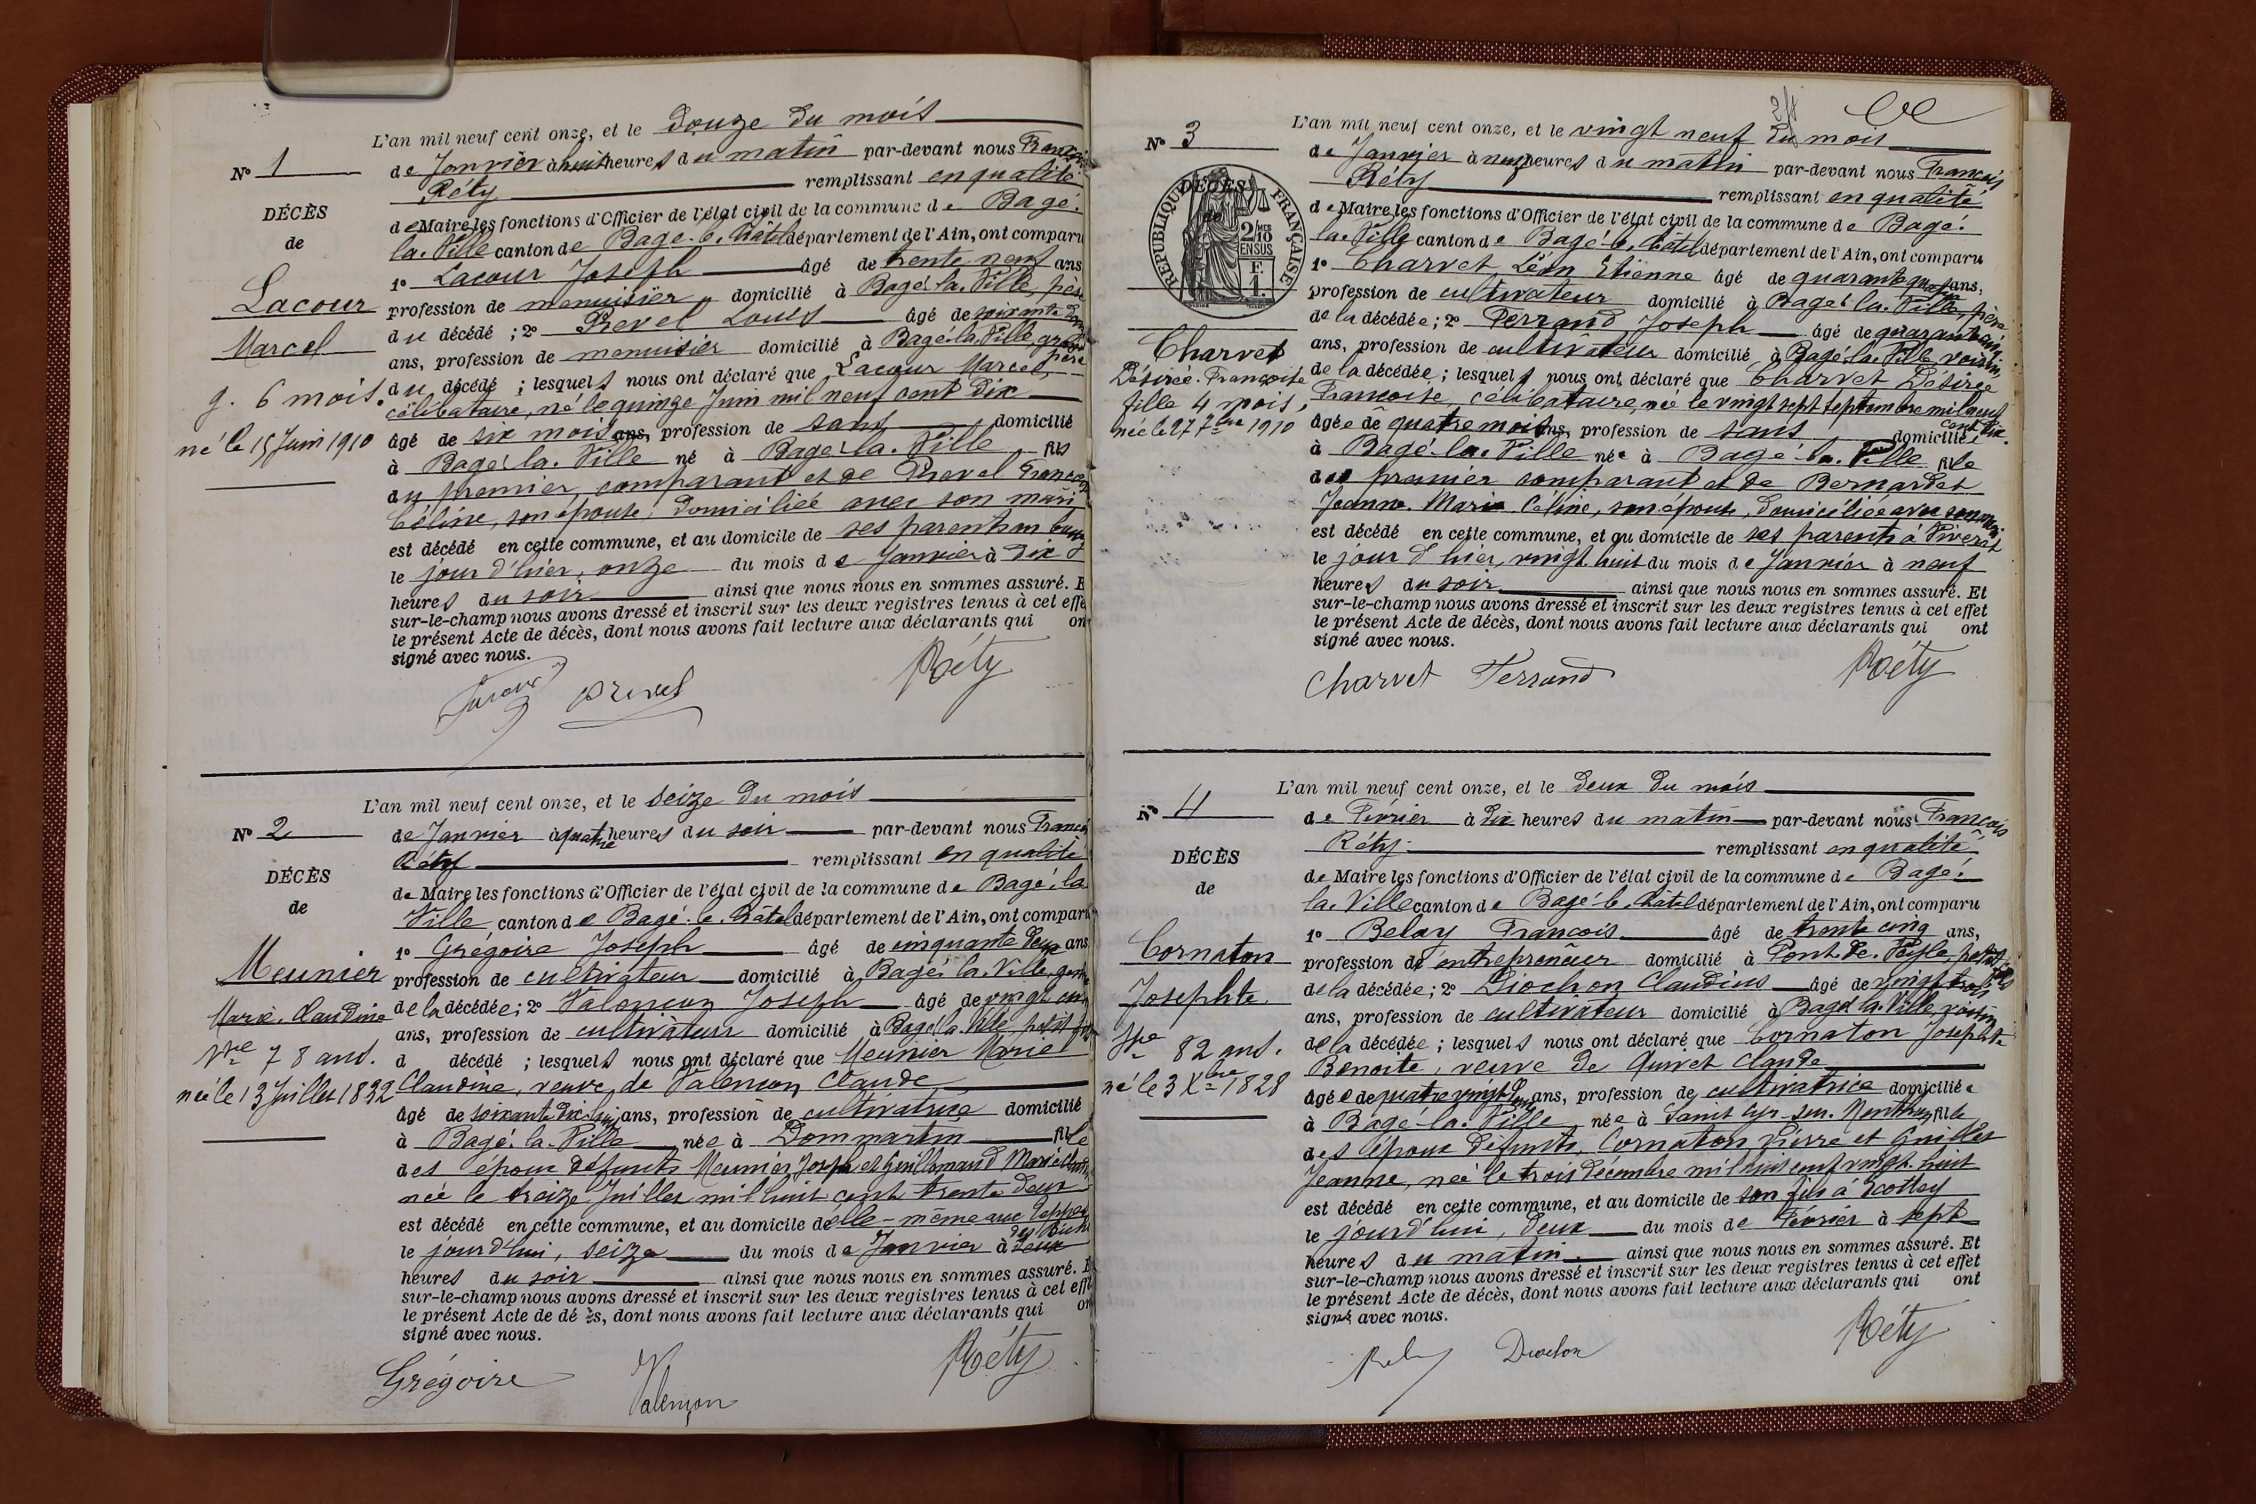 L'an mil neuf cent onze, et le douze du mois
N° 1
de Janvier à huit heures du matin par-devant nous François
Réty remplissant en qualité
DÉCÈS
de Maire les fonctions d'Officier de l'état civil de la commune de Bagé-
de
la-Ville canton de Bagé-le-Châtel département de l'Ain, ont comparu
1° Lacour Joseph âgé de trente neuf ans
Lacour
profession de menuisier domicilié à Bagé-la-Ville, père
Marcel
du décédé ; 2° Prevel Louis âgé de soixante deux
ans, profession de menuisier domicilié à Bagé-la-Ville grand
père
g. 6 mois.
du décédé ; lesquels nous ont déclaré que Lacour Marcel,
célibataire, né le quinze Juin mil neuf cent dix
né le 15 Juin 1910
âgé de six mois ans, profession de sans domicilié
à Bagé-la-Ville né à Bagé-la-Ville fils
du premier comparant et de Prevel
Céline, son épouse, domiciliée avec son mari
est décédé en cette commune, et au domicile de ses parents
le jour d'hier, onze du mois de Janvier à dix
heures du soir ainsi que nous nous en sommes assuré. E
sur-le-champ nous avons dressé et inscrit sur les deux registres tenus à cet effe
le présent Acte de décès, dont nous avons fait lecture aux déclarants qui on
signé avec nous.
Lacour Prevel Réty
L'an mil neuf cent onze, et le seize du mois
N° 2
de Janvier à quatre heures du soir par-devant nous François
Réty remplissant en qualité
DÉCÈS
de Maire les fonctions d'Officier de l'état civil de la commune de Bagé-la
de
Ville canton de Bagé-le-Châtel département de l'Ain, ont comparu
1° Grégoire Joseph âgé de cinquante deux ans
Meunier
profession de cultivateur domicilié à Bagé-la-Ville, gendre
Marie-Claudine
de la décédée ; 2° Valençon Joseph âgé de vingt cinq
ans, profession de cultivateur domicilié à Bagé-la-Ville petit fils
Vve 78 ans.
d décédé ; lesquels nous ont déclaré que Meunier Marie
née le 13 Juillet 1832
Claudine, veuve de Valençon Claude,
âgé de soixante dix huit ans, profession de cultivatrice domicilié
à Bagé-la-Ville née à Dommartin fille
des époux défunts Meunier Joseph et Guillemaud Marie
née le treize Juillet mil huit cent trente deux
est décédé en cette commune, et au domicile d'elle-même
le jourd'hui, seize du mois de Janvier à deux
heures du soir ainsi que nous nous en sommes assuré. E
sur-le-champ nous avons dressé et inscrit sur les deux registres tenus à cet effe
le présent Acte de décès, dont nous avons fait lecture aux déclarants qui on
signé avec nous.
Grégoire Valençon Réty
L'an mil neuf cent onze, et le vingt neuf du mois
N° 3
de Janvier à neuf heures du matin par-devant nous François
Réty remplissant en qualité
DÉCÈS
de
RÉPUBLIQUE FRANÇAISE
2/10 EN SUS
de Maire les fonctions d'Officier de l'état civil de la commune de Bagé-
la-Ville canton de Bagé-le-Châtel département de l'Ain, ont comparu
1° Charvet Léon Etienne âgé de quarante quatre ans,
profession de cultivateur domicilié à Bagé-la-Ville, père
de la décédée ; 2° Ferrand Joseph âgé de quarante cinq
Charvet
ans, profession de cultivateur domicilié à Bagé-la-Ville voisin
Désirée-Françoise
de la décédée ; lesquels nous ont déclaré que Charvet Désirée
fille 4 mois,
Françoise, célibataire, née le vingt sept septembre mil neuf
cent dix.
née le 27 7bre 1910
âgée de quatre mois ans, profession de sans domicilié
à Bagé-la-Ville née à Bagé-la-Ville fille
du premier comparant et de Bernardet
Jeanne-Marie Céline, son épouse, domiciliée avec son mari
est décédé en cette commune, et au domicile de ses parents à
le jour d'hier, vingt-huit du mois de Janvier à neuf
heures du soir ainsi que nous nous en sommes assuré. Et
sur-le-champ nous avons dressé et inscrit sur les deux registres tenus à cet effet
le présent Acte de décès, dont nous avons fait lecture aux déclarants qui ont
signé avec nous.
Charvet Ferrand Réty
L'an mil neuf cent onze, et le deux du mois
N° 4
de Février à dix heures du matin par-devant nous François
Réty remplissant en qualité
DÉCÈS
de Maire les fonctions d'Officier de l'état civil de la commune de Bagé-
de
la-Ville canton de Bagé-le-Châtel département de l'Ain, ont comparu
1° Belay François âgé de trente cinq ans,
Cornaton
profession d'entrepreneur domicilié à Pont-de-Veyle, petit-fils
Josephte
de la décédée ; 2° Diochon Claudius âgé de vingt trois
ans, profession de cultivateur domicilié à Bagé-la-Ville, voisin
82 ans.
de la décédée ; lesquels nous ont déclaré que Cornaton Josephte
né le 3 Xbre 1828
Benoîte, veuve de Quivet Claude
âgée de quatre vingt deux ans, profession de cultivatrice domiciliée
à Bagé-la-Ville née à Saint Cyr-sur-Menthon fille
des époux défunts, Cornaton Pierre et Guillet
Jeanne, née le trois décembre mil huit cent vingt-huit
est décédé en cette commune, et au domicile de son fils à
le jourd'hui, deux du mois de Février à sept
heures du matin ainsi que nous nous en sommes assuré. Et
sur-le-champ nous avons dressé et inscrit sur les deux registres tenus à cet effet
le présent Acte de décès, dont nous avons fait lecture aux déclarants qui ont
signé avec nous.
Belay Diochon Réty